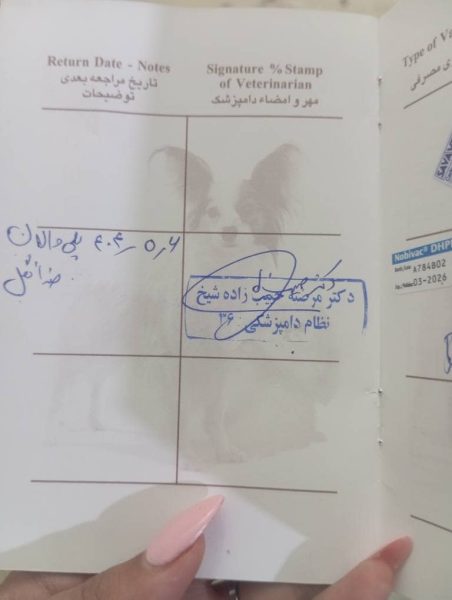 Return Date - Notes
تاریخ مراجعه بعدی
توضیحات
Signature % Stamp
of Veterinarian
مهر و امضاء دامپزشک
پلی والان
ضد انگل
دکتر مرضیه حبیب زاده شیخ
نظام دامپزشکی
Type of Va
ی مصرفی
Nobivac DHP
A784B02
03-2026